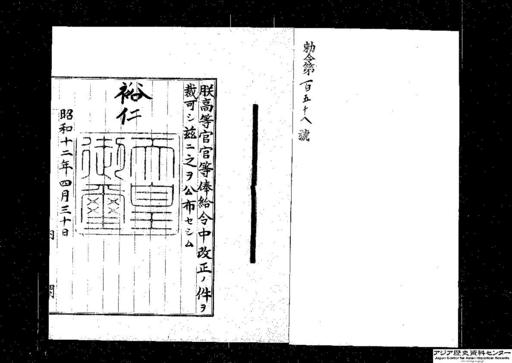 勅令第百五十八號
朕高等官官等俸給令中改正ノ件ヲ
裁可シ茲ニ之ヲ公布セシム
裕仁
天皇
御璽
昭和十二年四月三十日
内閣
アジア歴史資料センター
Japan Center for Asian Historical Records